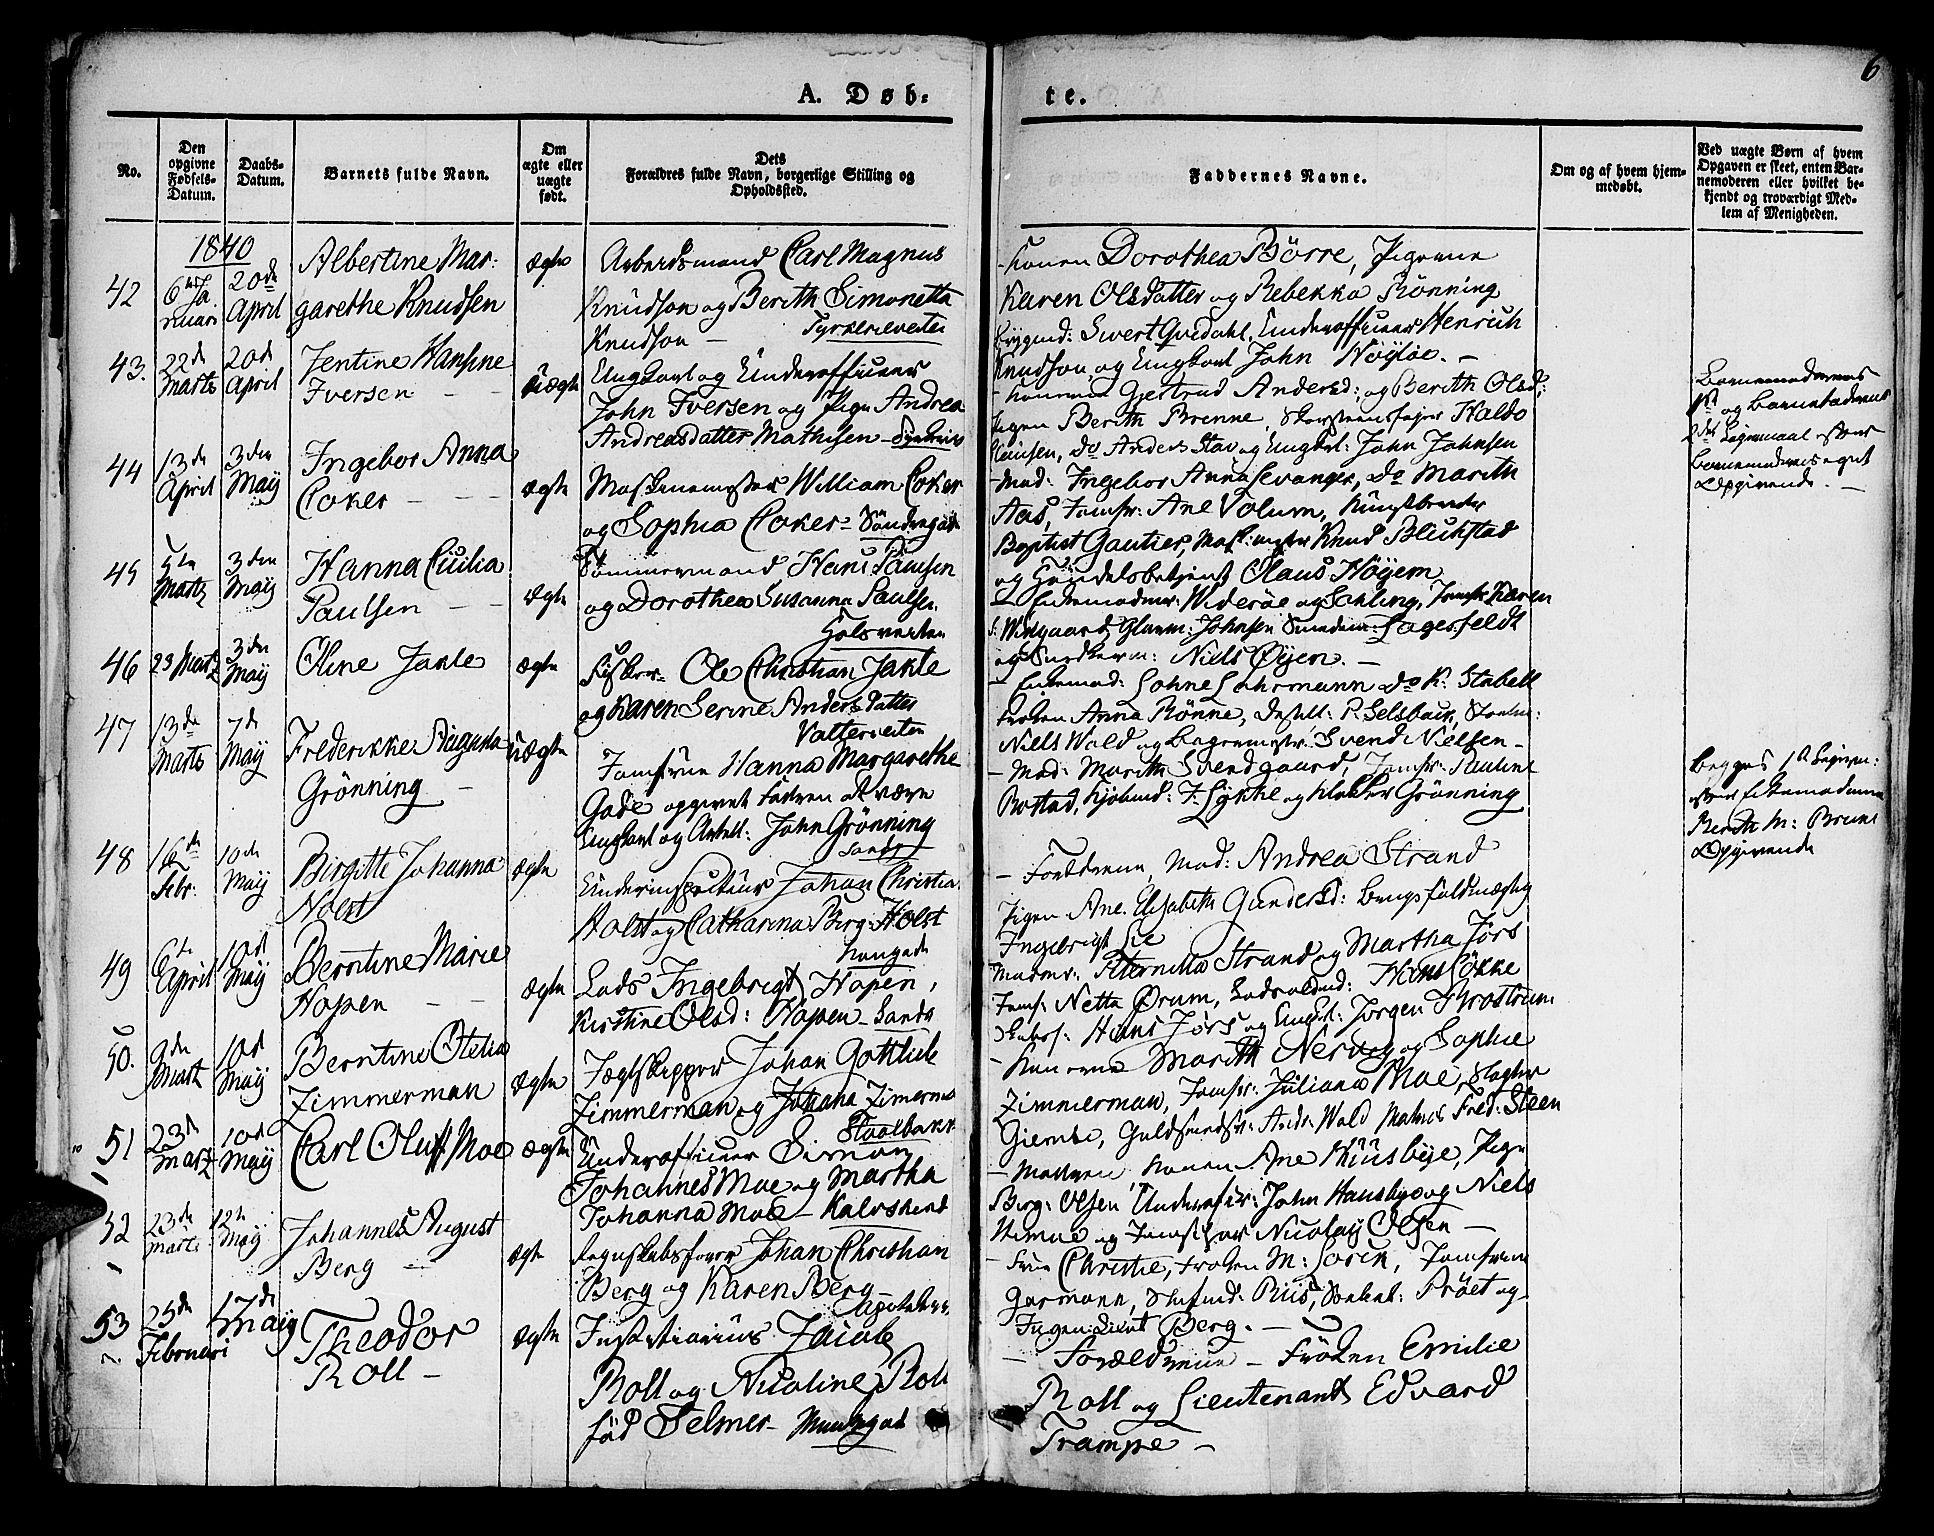 6
A. Døb-
te.
No.
Den opgivne Fødsels-Datum.
Daabs-Datum.
Barnets fulde Navn.
Om ægte eller uægte født.
Dets
Forældres fulde Navn, borgerlige Stilling og
Opholdssted.
Faddernes Navne.
Om og af hvem hjem-
medøbt.
Ved uægte Børn af hvem
Opgaven er skeet, enten Bar-
nemoderen eller hvilket be-
kjendt og troværdigt Med-
lem af Menigheden.
1840
42
6te Ja
nuari
20de
April
Albertine Mar-
garethe Knudsen
ægte
Arbeidsmand Carl Magnus
Knudson og Berith Simonetta
Knudson —
Konen Dorothea Börre, Pigerne
Karen Olsdatter og Rebekka Rönning
Sivert Qvedahl, Underofficeer Henrich
Knudson, og Ungkarl John Höyloe. —
43.
22de
Marts
20de
April
Jentine Hansine
Iversen — —
Uægte
Ungkarl og Underofficeer
John Iversen og Pige Andrea
Andreasdatter Mathisen —
Konerne Gjertrud Andersd: og Berith Olsd:
Pigen Berith Brenne, Skorsteensfejer Haldo
Hansen, Do Anders Stav og Ungkrl: John Johnsen
Barnemoderens
1st og Barnefaderens
2det Leiermaal efter
Barnemoderens eget
Opgivende. —
44
13de
April
3den
Maij
Ingebor Anna
Coker — — —
ægte
Maskinemester William Coker
og Sophia Coker — Söndregade
Mad: Ingebor Anna Levanger, Do Marith
Aas, Jomfr: Ane Volum, Kunstbereder
Baptist Gautier, Knud Blichstad
og Handelsbetjent Olaus Höyem
45
5te
Martz
3den
Maij
Hanna Cicilia
Paulsen — —
ægte
Tömmermand Hans Paulsen
og Dorothea Susanna Paulsen
Enkemadmr: Wideröe og Schling, Jomfr: Karen
Johnsen
og Snedkerm: Niels Öyen. —
46
23 Martz
3den
Maij
Oline Jakle
ægte
Fisker Ole Christian Jakle
og Karen Serine Andersdatter
Enkemad: Lohne Lohrmann Do K. Stabell
Fröken Anna Rönne, P. Selsback,
Niels Wold og Svend Nielsen —
47
13de
Marts
7de
Maij
Frederikke Augusta
Grönning —
Uægte
Jomfrue Hanna Margarethe
Gade opgivet Faderen at være
Ungkarl og Arbeid: John Grönning
Mad: Marith Svendgaard, Jomfr: Pauline
Rostad, Kjöbmd: F. Lykke og Klokker Grönning
Begges 1st Leierm:
efter Enkemadame
Berith M: Bruns
Opgivende
48
16de
Febr:
10de
Maij
Birgitte Johanna
Holst
ægte
Underinspecteur Johan Christian
Holst og Catharina Berg Holst
Forældrene, Mad: Andrea Strand
Pigen Ane Elisabeth Gundersd: Bergsfuldmægtig
Ingebrigt Lie
49
6te
April
10de
Maij
Berntine Marie
Hopen — —
ægte
Lods Ingebrigt Hopen,
Kirstine Olsd: Hopen —
Madmr: Peternilla Strand og Martha Jörs
Jomf: Netta Örum, Lodsoldmd: Hans Lökke
Hans Jörs og Ungkrl: Jorgen Broström
50.
9de
Martz
10de
Maij
Berntine Otelia
Zimmerman
ægte
Jægtskipper Johan Gottlieb
Zimmerman og Johana Zimerman
Konerne Marith Nervig og Sophie
Zimmerman, Jomfr: Juliana Moe, Slagter
Giembe, Guldsmedsv: Andr: Wold Fred: Steen
51
23de
Martz
10de
Maij
Carl Oluff Moe
ægte
Underofficeer Simon
Johannes Moe og Martha
Johanna Moe — Kalvskind
Moderen, Konen Ane Huusbye, Pige
Berg: Olsen Underofr: John Hansby og Niels
og Nicolay Olsen —
52
23de
Marts
12te
Maij
Johannes August
Berg —
ægte
Regnskabsförer Johan Christian
Berg og Karen Berg —
Frue Christie, Fröken M: Lorck, Jomfruen
Garmann, Skibsmd: Riis, Pröet og
Ingen:Lieut Berg. —
53
25de
Februari
17de
Maij
Theodor
Roll —
ægte
Justitiarius Jacob
Roll og Nicoline Roll
föd Selmer — Munkgad
— Forældrene — Fröken Emilie
Roll og Lieutenant Edvard
Trampe —